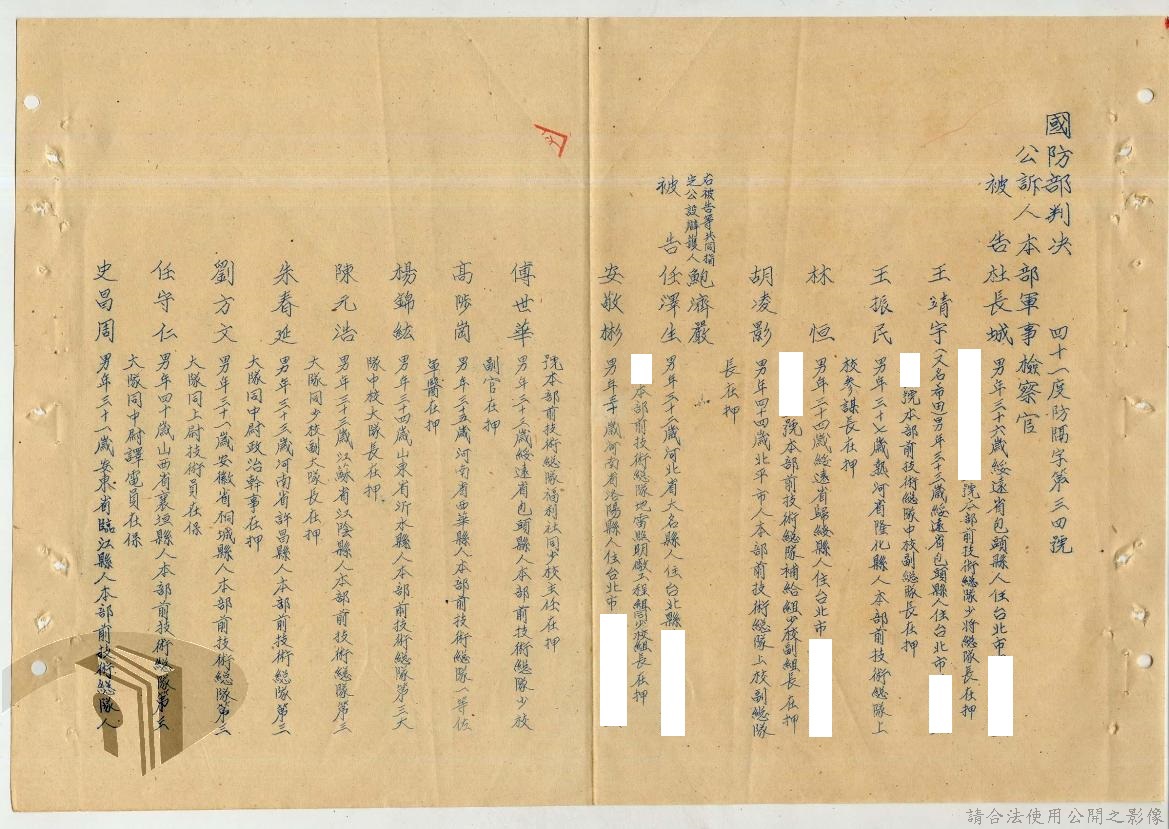 國防部判決 四十一度防隔字第三四號
公訴人本部軍事檢察官
被告杜長城 男年三十六歲綏遠省包頭縣人住台北市
號本部前技術總隊少將總隊長在押
王靖宇(又名布田)男年三十三歲綏遠省包頭縣人住台北市
號本部前技術總隊中校副總隊長在押
王振民 男年三十七歲熱河省隆化縣人本部前技術總隊上
校參謀長在押
林恒 男年三十四歲綏遠省歸綏縣人住台北市
號本部前技術總隊補給組少校副組長在押
胡凌影 男年四十四歲北平市人本部前技術總隊上校副總隊
長在押
右被告等共同指
定公設辯護人鮑濟嚴
被告任澤生 男年三十六歲河北省大名縣人住台北縣
本部前技術總隊地雷照明廠工程組同少校組長在押
安敬彬 男年三十歲河南省洛陽縣人住台北市
號本部前技術總隊福利社同少校主任在押
傅世華 男年三十三歲綏遠省包頭縣人本部前技術總隊少校
副官在押
高陟崗 男年三十五歲河南省西華縣人本部前技術總隊一等佐
軍醫在押
楊錦紘 男年三十四歲山東省沂水縣人本部前技術總隊第三大
隊中校大隊長在押
陳元浩 男年三十三歲江蘇省江陰縣人本部前技術總隊第三
大隊同少校副大隊長在押
朱春延 男年三十三歲河南省許昌縣人本部前技術總隊第三
大隊同中尉政治幹事在押
劉方文 男年三十一歲安徽省桐城縣人本部前技術總隊第三
大隊同上尉技術員在保
任守仁 男年四十歲山西省襄垣縣人本部前技術總隊第三
大隊同中尉譯電員在保
史昌周 男年三十一歲安東省臨江縣人本部前技術總隊人
請合法使用公開之影像